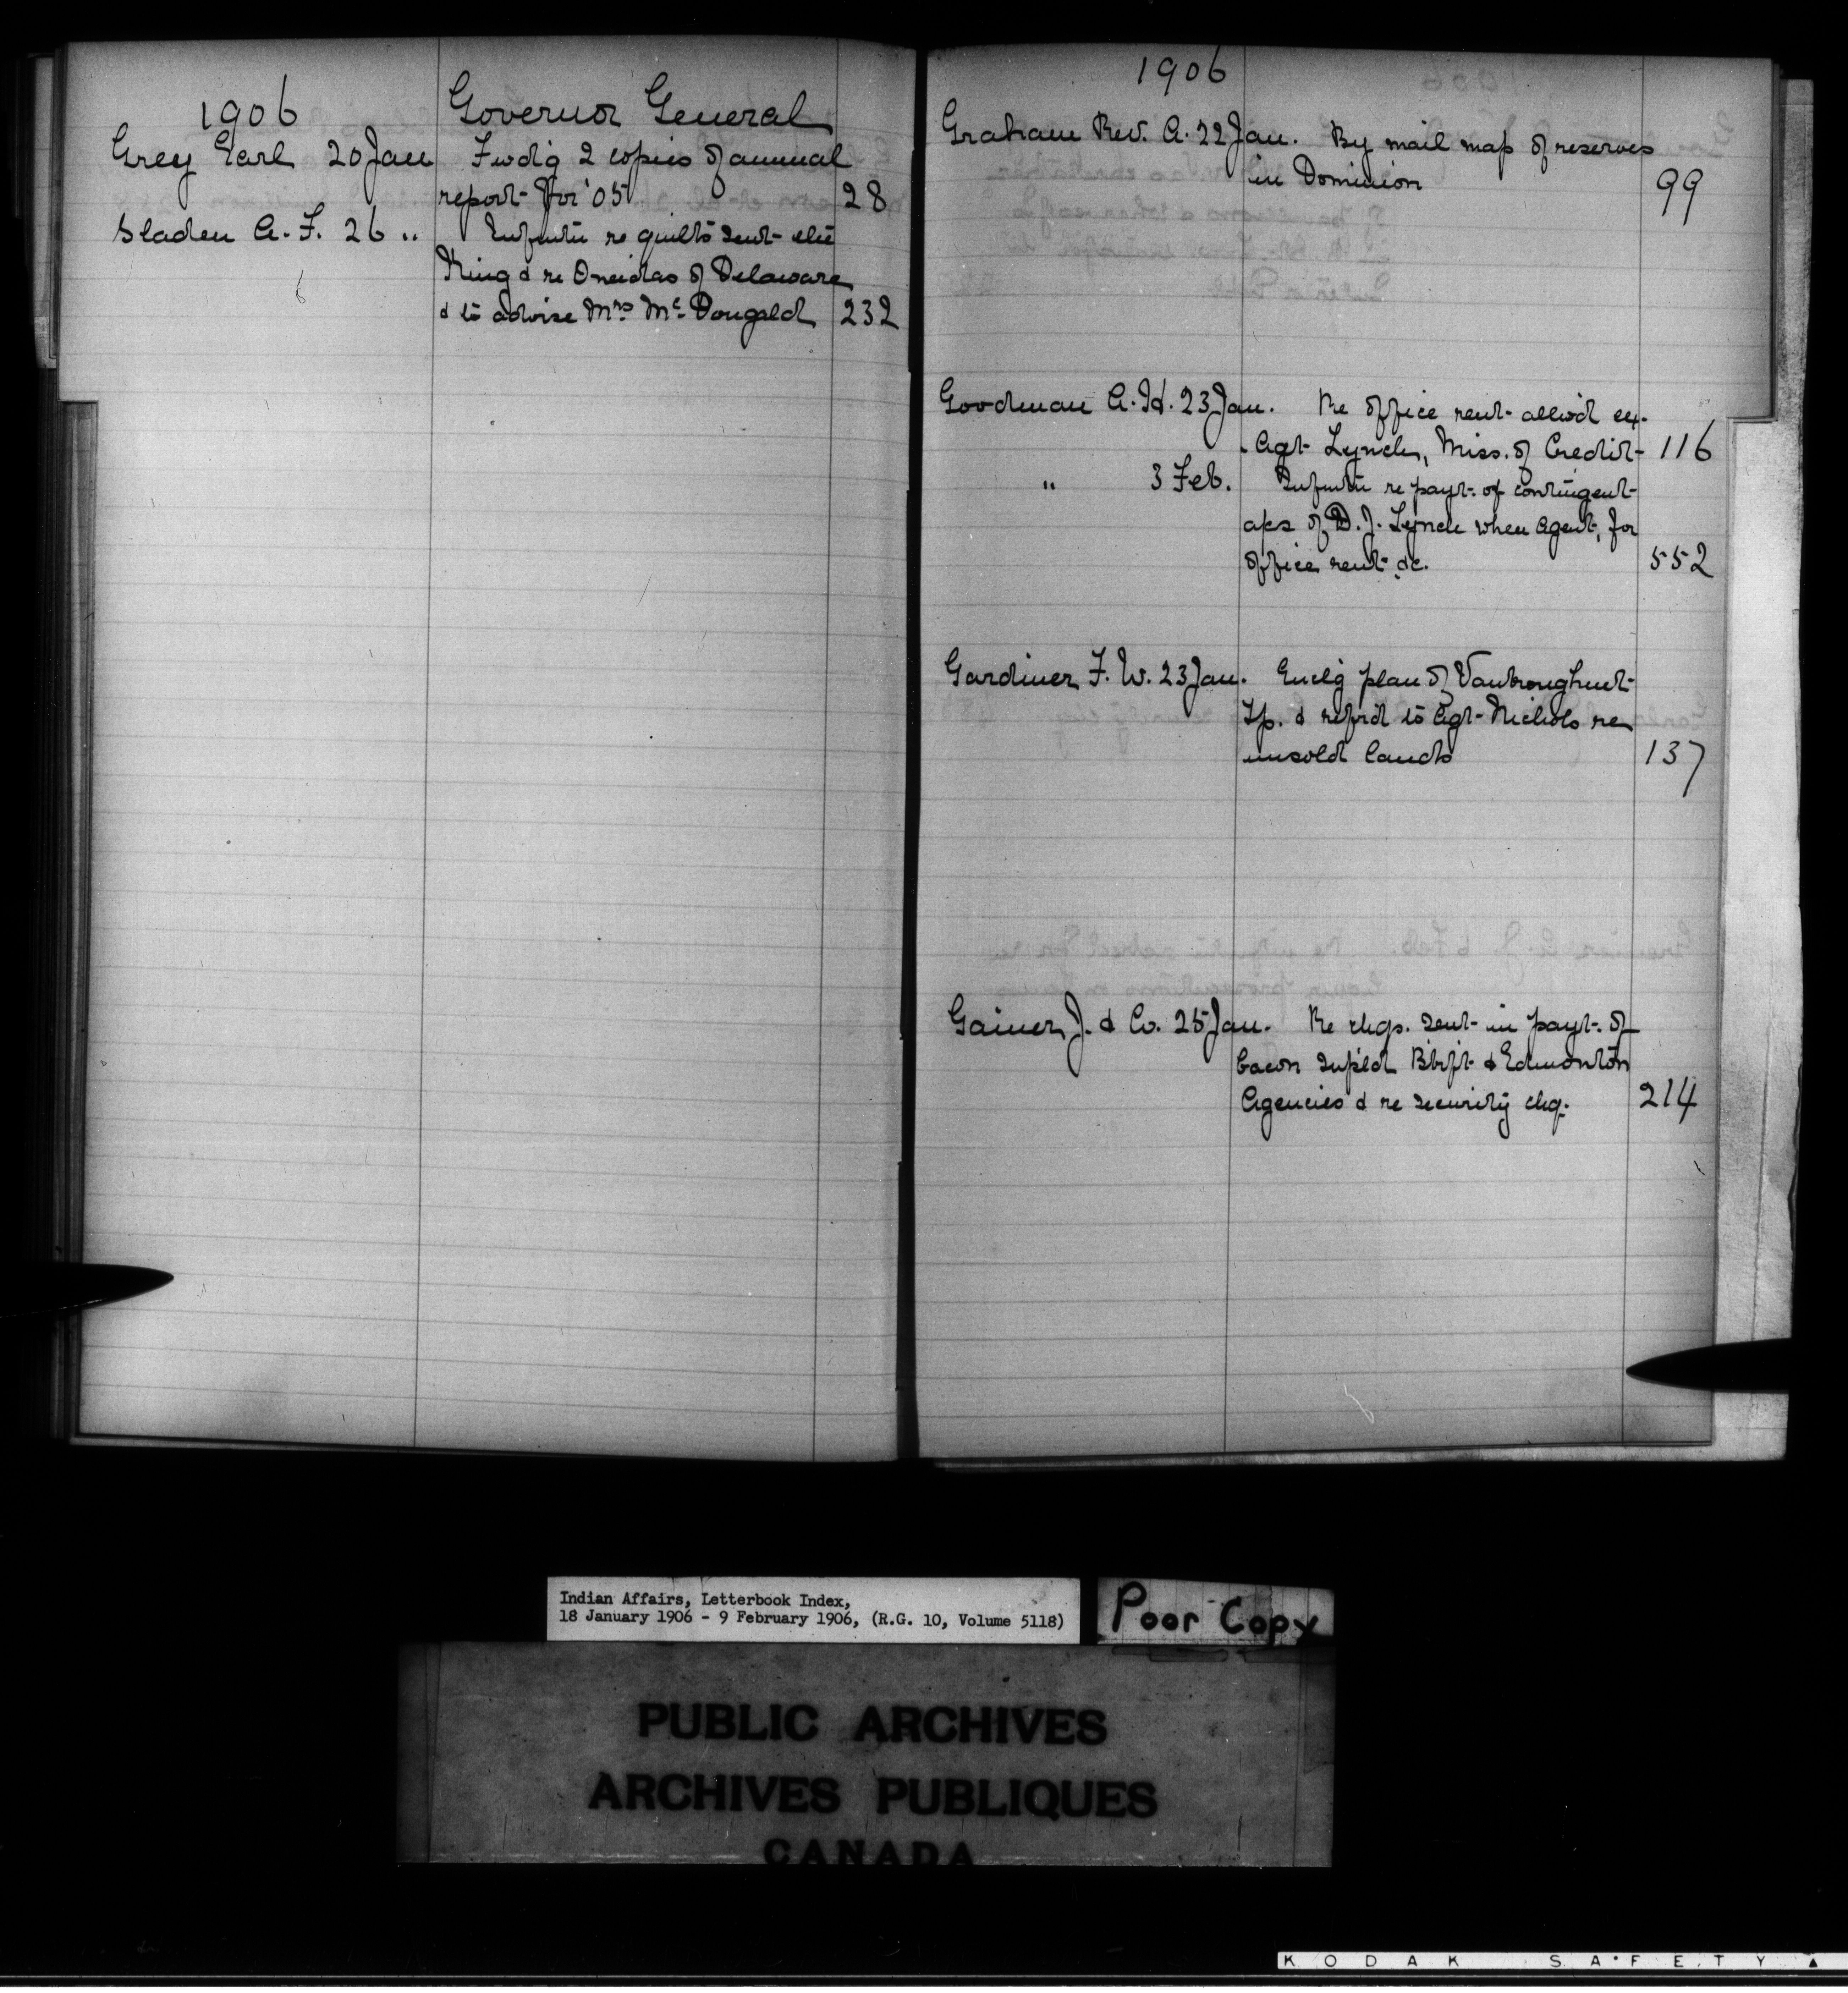 1906 Governor General
Grey Earl 20 Jan Fwdig 2 copies of annual
report for '05 28
Sladen A. F. 26 " Infmtn re quilts sent the
King & re Oneidas of Delaware
& to advise Mrs. Mc. Dougald 232
1906
Graham Rev. A. 22 Jan. By mail map of reserves
in Dominion 99
Goodman A. H. 23 Jan. Re office rent allwd ex.
Agt Lynch, Miss. of Credit 116
" 3 Feb. Infmtn re payt. of contingent
a/cs of D. J. Lynch when Agent, for
office rent &c. 552
Gardiner F. W. 23 Jan. Enclg plan of
Tp. & refrd to Agt Nichols re
unsold lands 137
Gainer J. & Co. 25 Jan. Re chqs. sent in payt. of
bacon supld & Edmonton
Agencies & re security chq. 214
Indian Affairs, Letterbook Index,
18 January 1906 - 9 February 1906, (R.G. 10, Volume 5118)
Poor Copy
PUBLIC ARCHIVES
ARCHIVES PUBLIQUES
CANADA
KODAK SAFETY